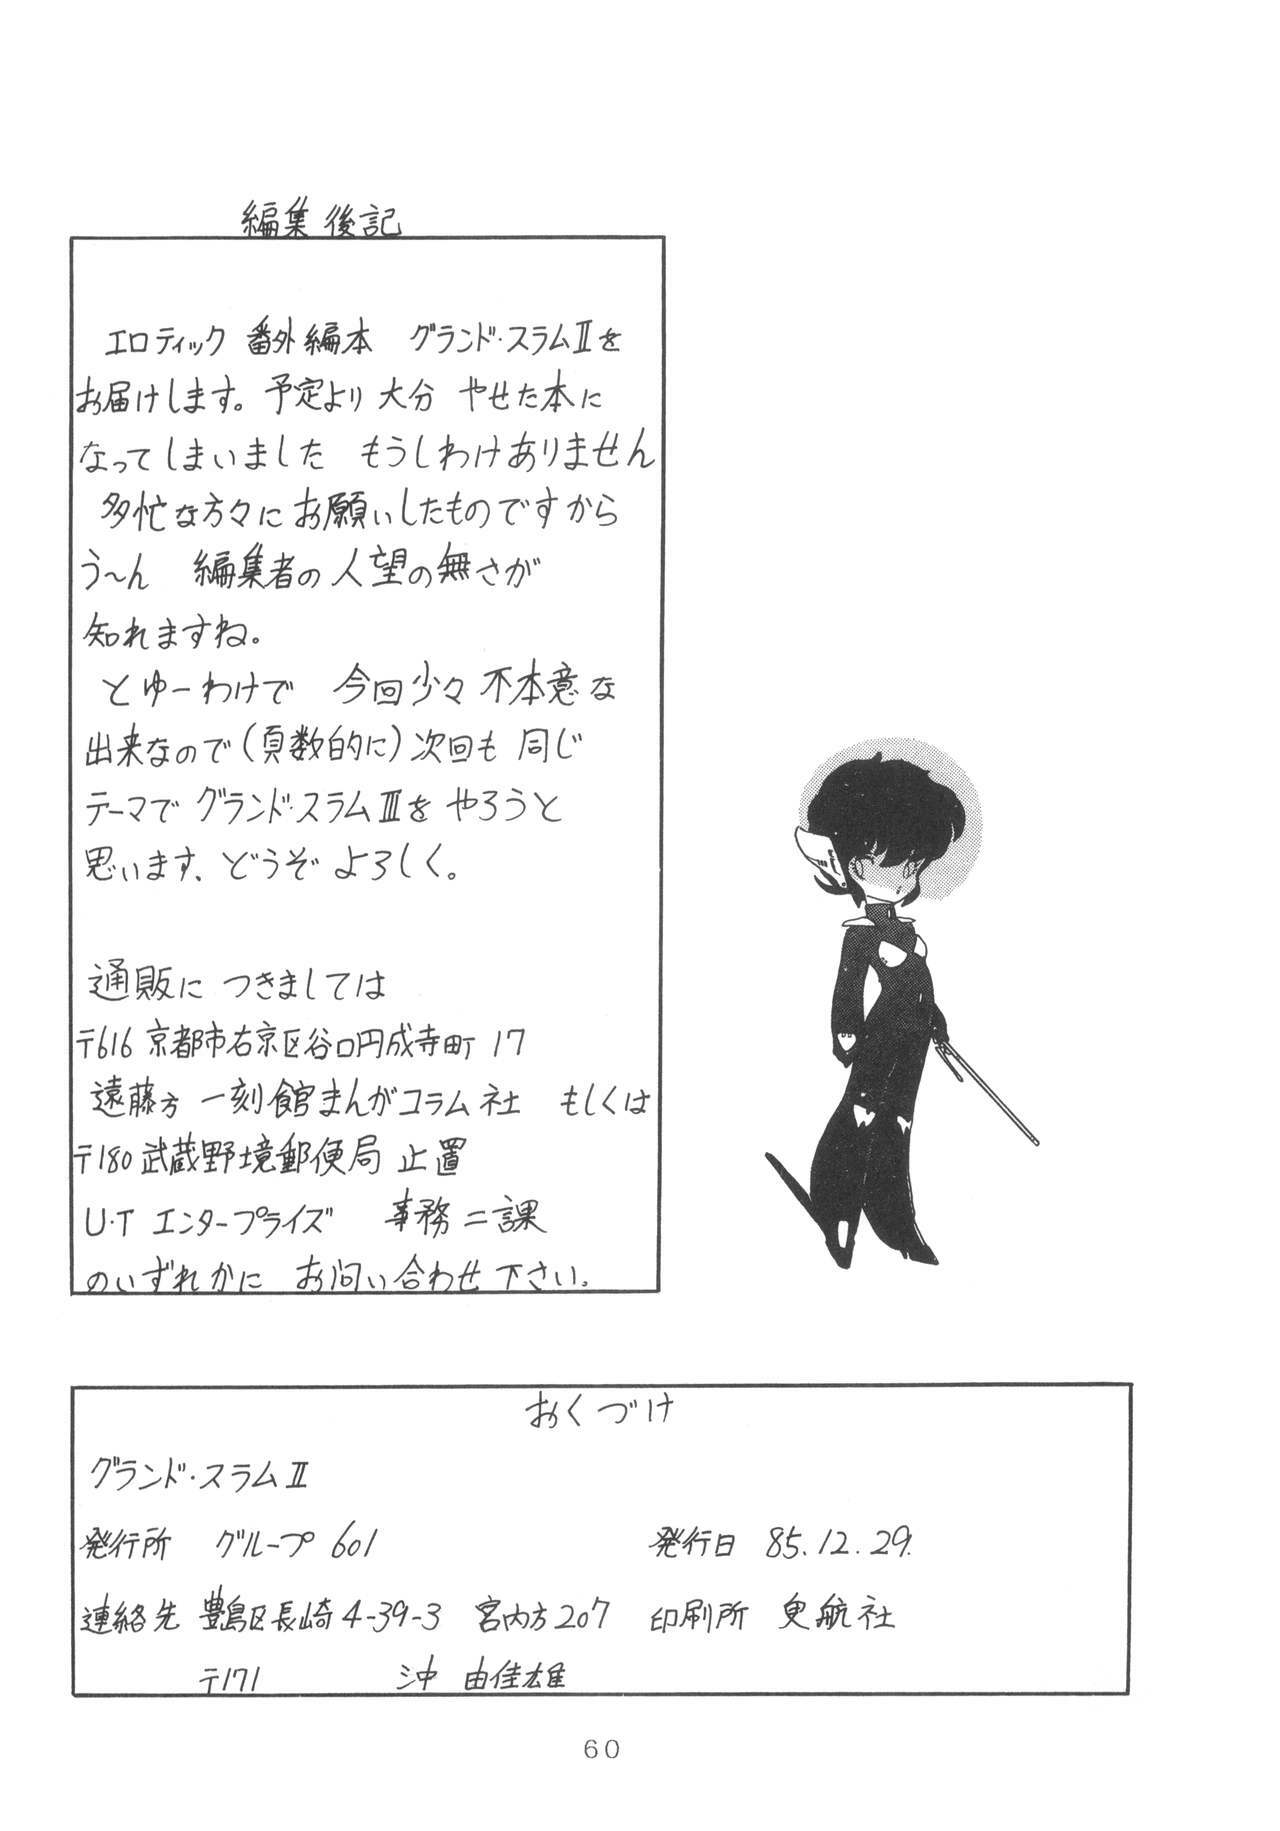 編集後記
エロティック 番外編本 グランド・スラムⅡを
お届けします。予定より 大分 やせた本に
なってしまいました もうしわけありません
多忙な方々にお願いしたものですから
う〜ん 編集者の人望の無さが
知れますね。
とゆーわけで 今回少々不本意な
出来なので(頁数的に)次回も 同じ
テーマで グランド・スラムⅢを やろうと
思います、どうぞ よろしく。
通販に つきましては
〒616 京都市右京区谷口円成寺町 17
遠藤方 一刻館まんがコラム社 もしくは
〒180 武蔵野境郵便局 止置
U・T エンタープライズ 事務二課
のいずれかに お問い合わせ 下さい。
おくづけ
グランド・スラムⅡ
発行所 グループ 601 発行日 85.12.29.
連絡先 豊島区長崎4-39-3 宮内方207 印刷所 曳航社
〒171 沖 由佳雄
60